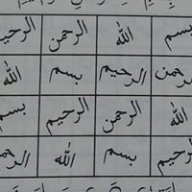 بسم الله الرحمن الرحيم
الرحمن الرحيم بسم الله
الله الرحمن الرحيم بسم
الرحيم بسم الله الرحمن